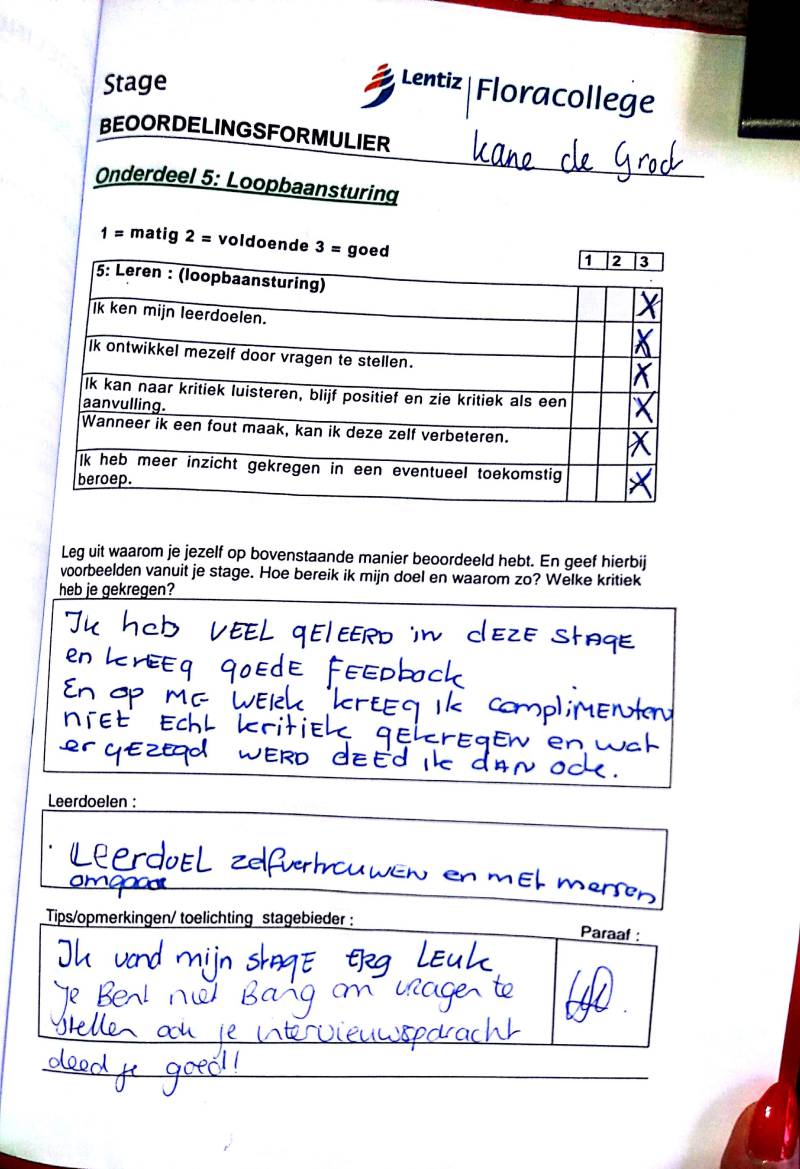 Stage
Lentiz | Floracollege
BEOORDELINGSFORMULIER
kane de Groot
Onderdeel 5: Loopbaansturing
1 = matig 2 = voldoende 3 = goed
1 2 3
5: Leren : (loopbaansturing) X
Ik ken mijn leerdoelen. X
Ik ontwikkel mezelf door vragen te stellen. X
Ik kan naar kritiek luisteren, blijf positief en zie kritiek als een
aanvulling. X
Wanneer ik een fout maak, kan ik deze zelf verbeteren. X
Ik heb meer inzicht gekregen in een eventueel toekomstig
beroep. X
Leg uit waarom je jezelf op bovenstaande manier beoordeeld hebt. En geef hierbij
voorbeelden vanuit je stage. Hoe bereik ik mijn doel en waarom zo? Welke kritiek
heb je gekregen?
Ik heb VEEL gElEERD in dEZE StAgE
en krEEg goEdE FEEDback
En op ME WERk krEEg ik complimENten
niEt Echt kritiEk gEkrEgEN en wat
er gEzEgd WERD dEEd ik dAN ook.
Leerdoelen :
LeerdoEL zelfvertrouwEN en mEt mensen
omgaan
Tips/opmerkingen/ toelichting stagebieder :
Paraaf :
Ik vond mijn stAgE ERg LEuk
Je Bent niet Bang om vragen te
stellen ook je intervieuwopdracht
deed je goed!!